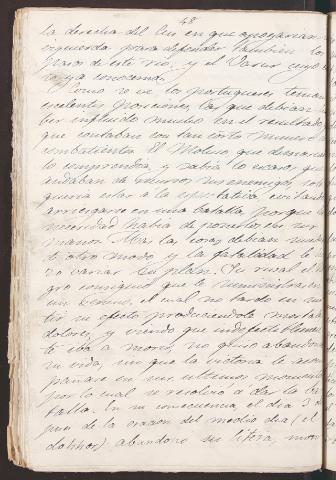 48
la derecha del Lus en que apoyaran
izquierda para defender tambien los
pasos de este rio, y el Varur cuyo
ya conocemos.
Como se ve, los portugueses tenian
excelentes posiciones, las que debian
ber influido mucho en el resultado
que contaban con tan corto numero
combatientes. El Moluco que demasiado
lo comprendia, y sabia lo escasos que
andaban de viveres sus enemigos, solo
queria estar á la espectativa evitando
arriesgarse en una batalla, porque la
necesidad habia de ponerlos en sus
manos. Mas las cosas debian suceder
de otro modo y la fatalidad le
zo variar su plan. Su rival el
gro consiguió que le suministrasen
un veneno, el cual no tardó en
tir su efecto produciendole mortales
dolores, y viendo que indefectiblemente
le iba á morir, no quiso abandonar
la vida, sin que la victoria le acom
pañase en sus ultimos momentos
por lo cual se resolvió á dar la ba
talla. En su consecuencia el dia 3
pues de la oracion del medio dia (el
dohhor) abandonó su litera, mon